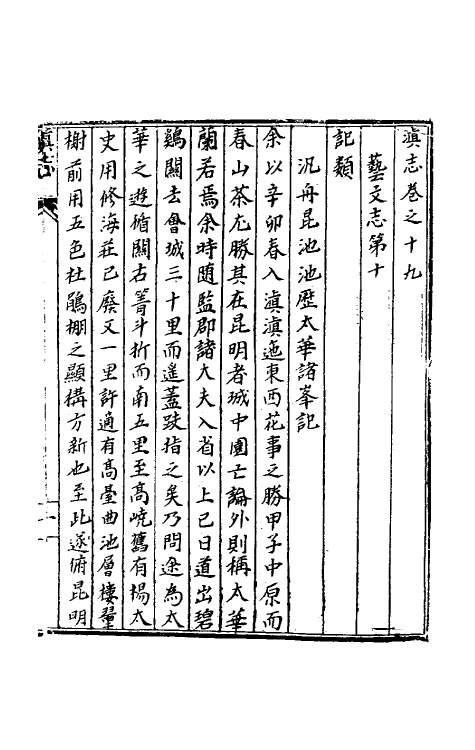 滇志卷之十九
藝文志第十
記類
汎舟昆池池歷太華諸峯記
余以辛卯春入滇滇迤東西花事之勝甲子中原而
春山茶尤勝其在昆明者城中園亡論外則稱太華
蘭若焉余時隨監郡諸大夫入省以上巳日道出碧
鷄關去會城三十里而遥蓋跂指之矣乃問途為太
華之遊循關古箐斗折而南五里至高嶢舊有楊太
史用修海莊已廢又一里許適有高臺曲池層樓
榭前用五色杜鵑棚之顯構方新也至此遂俯昆明
滇志